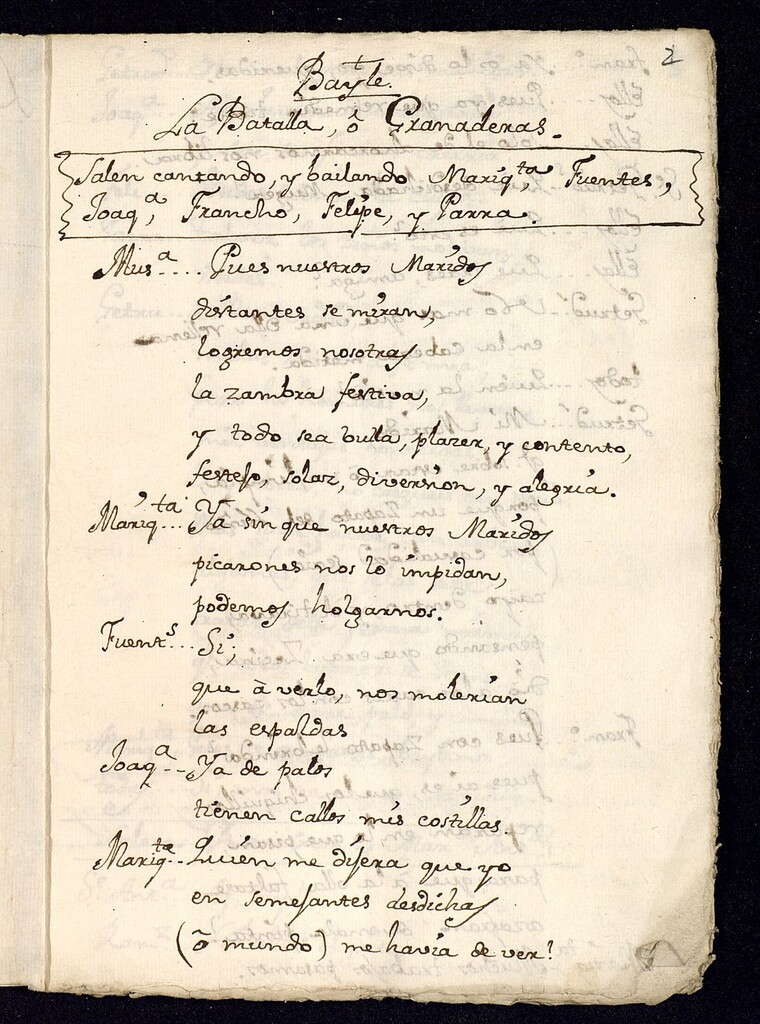 2
Bayle.
La Batalla, ô Granaderas.
Salen cantando, y bailando Mariq.ta, Fuentes,
Joaq.a, Francho, Felipe, y Parra.
Mus.a .... Pues nuestros Maridos
distantes se miran,
logremos nosotras
la zambra festiva,
y todo sea bulla, plazer, y contento,
festejo, solaz, diversion, y alegria.
Mariq.ta ... Ya sin que nuestros Maridos
picarones nos lo impidan,
podemos holgarnos.
Fuent.s ... Si;
que à verlo, nos molerian
las espaldas
Joaq.a .. Ya de palos
tienen callos mis costillas.
Mariq.ta .. Quien me dijera que yo
en semejantes desdichas
(ô mundo) me havia de ver!